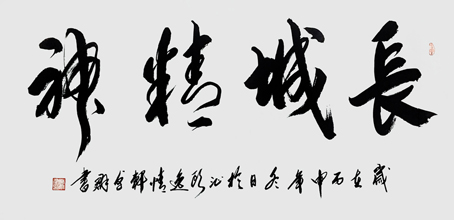 長城精神
歲在丙申年冬日於逸情軒書